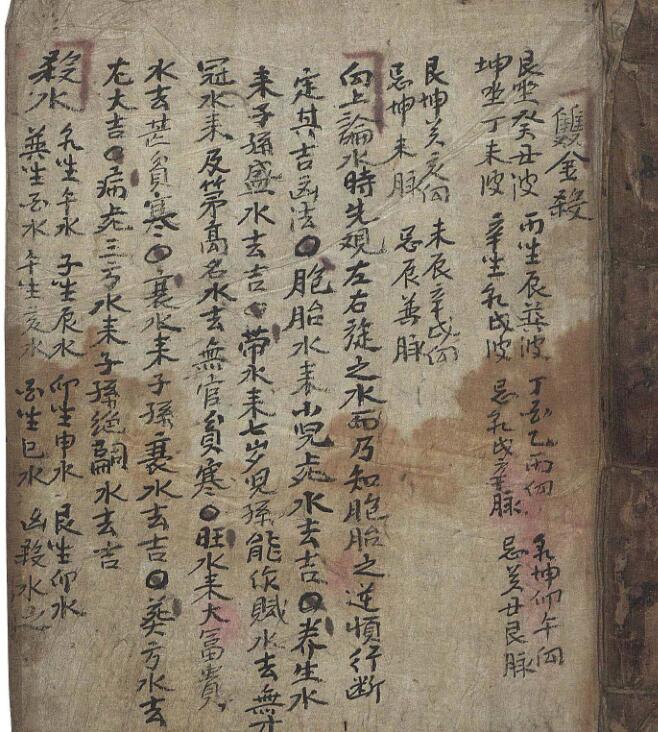 雙金殺
艮坐癸丑波 丙坐辰巽波 丁酉乙丙向 乾坤卯午向
坤坐丁未波 辛坐乾戌波 忌乾戌亥脉 忌癸丑艮脉
艮坤癸亥向 未辰辛戌向
忌坤未脉 忌辰巽脉
向上論水時先观左右旋之水而乃知胞胎之逆順行断
定其吉凶法〇胞胎水来小児死水去吉〇养生水
来子孫盛水去吉〇带水来七岁児孫能作賦水去無才
冠水来及第高名水去無官貧寒〇旺水来大富貴
水去甚貧寒〇衰水来子孫衰水去吉〇葬方水去
尤大吉〇病死三方水来子孫絶嗣水去吉
殺水 乾坐午水 子坐辰水 卯坐申水 艮坐卯水
巽坐酉水 午坐亥水 酉坐巳水 凶殺水也